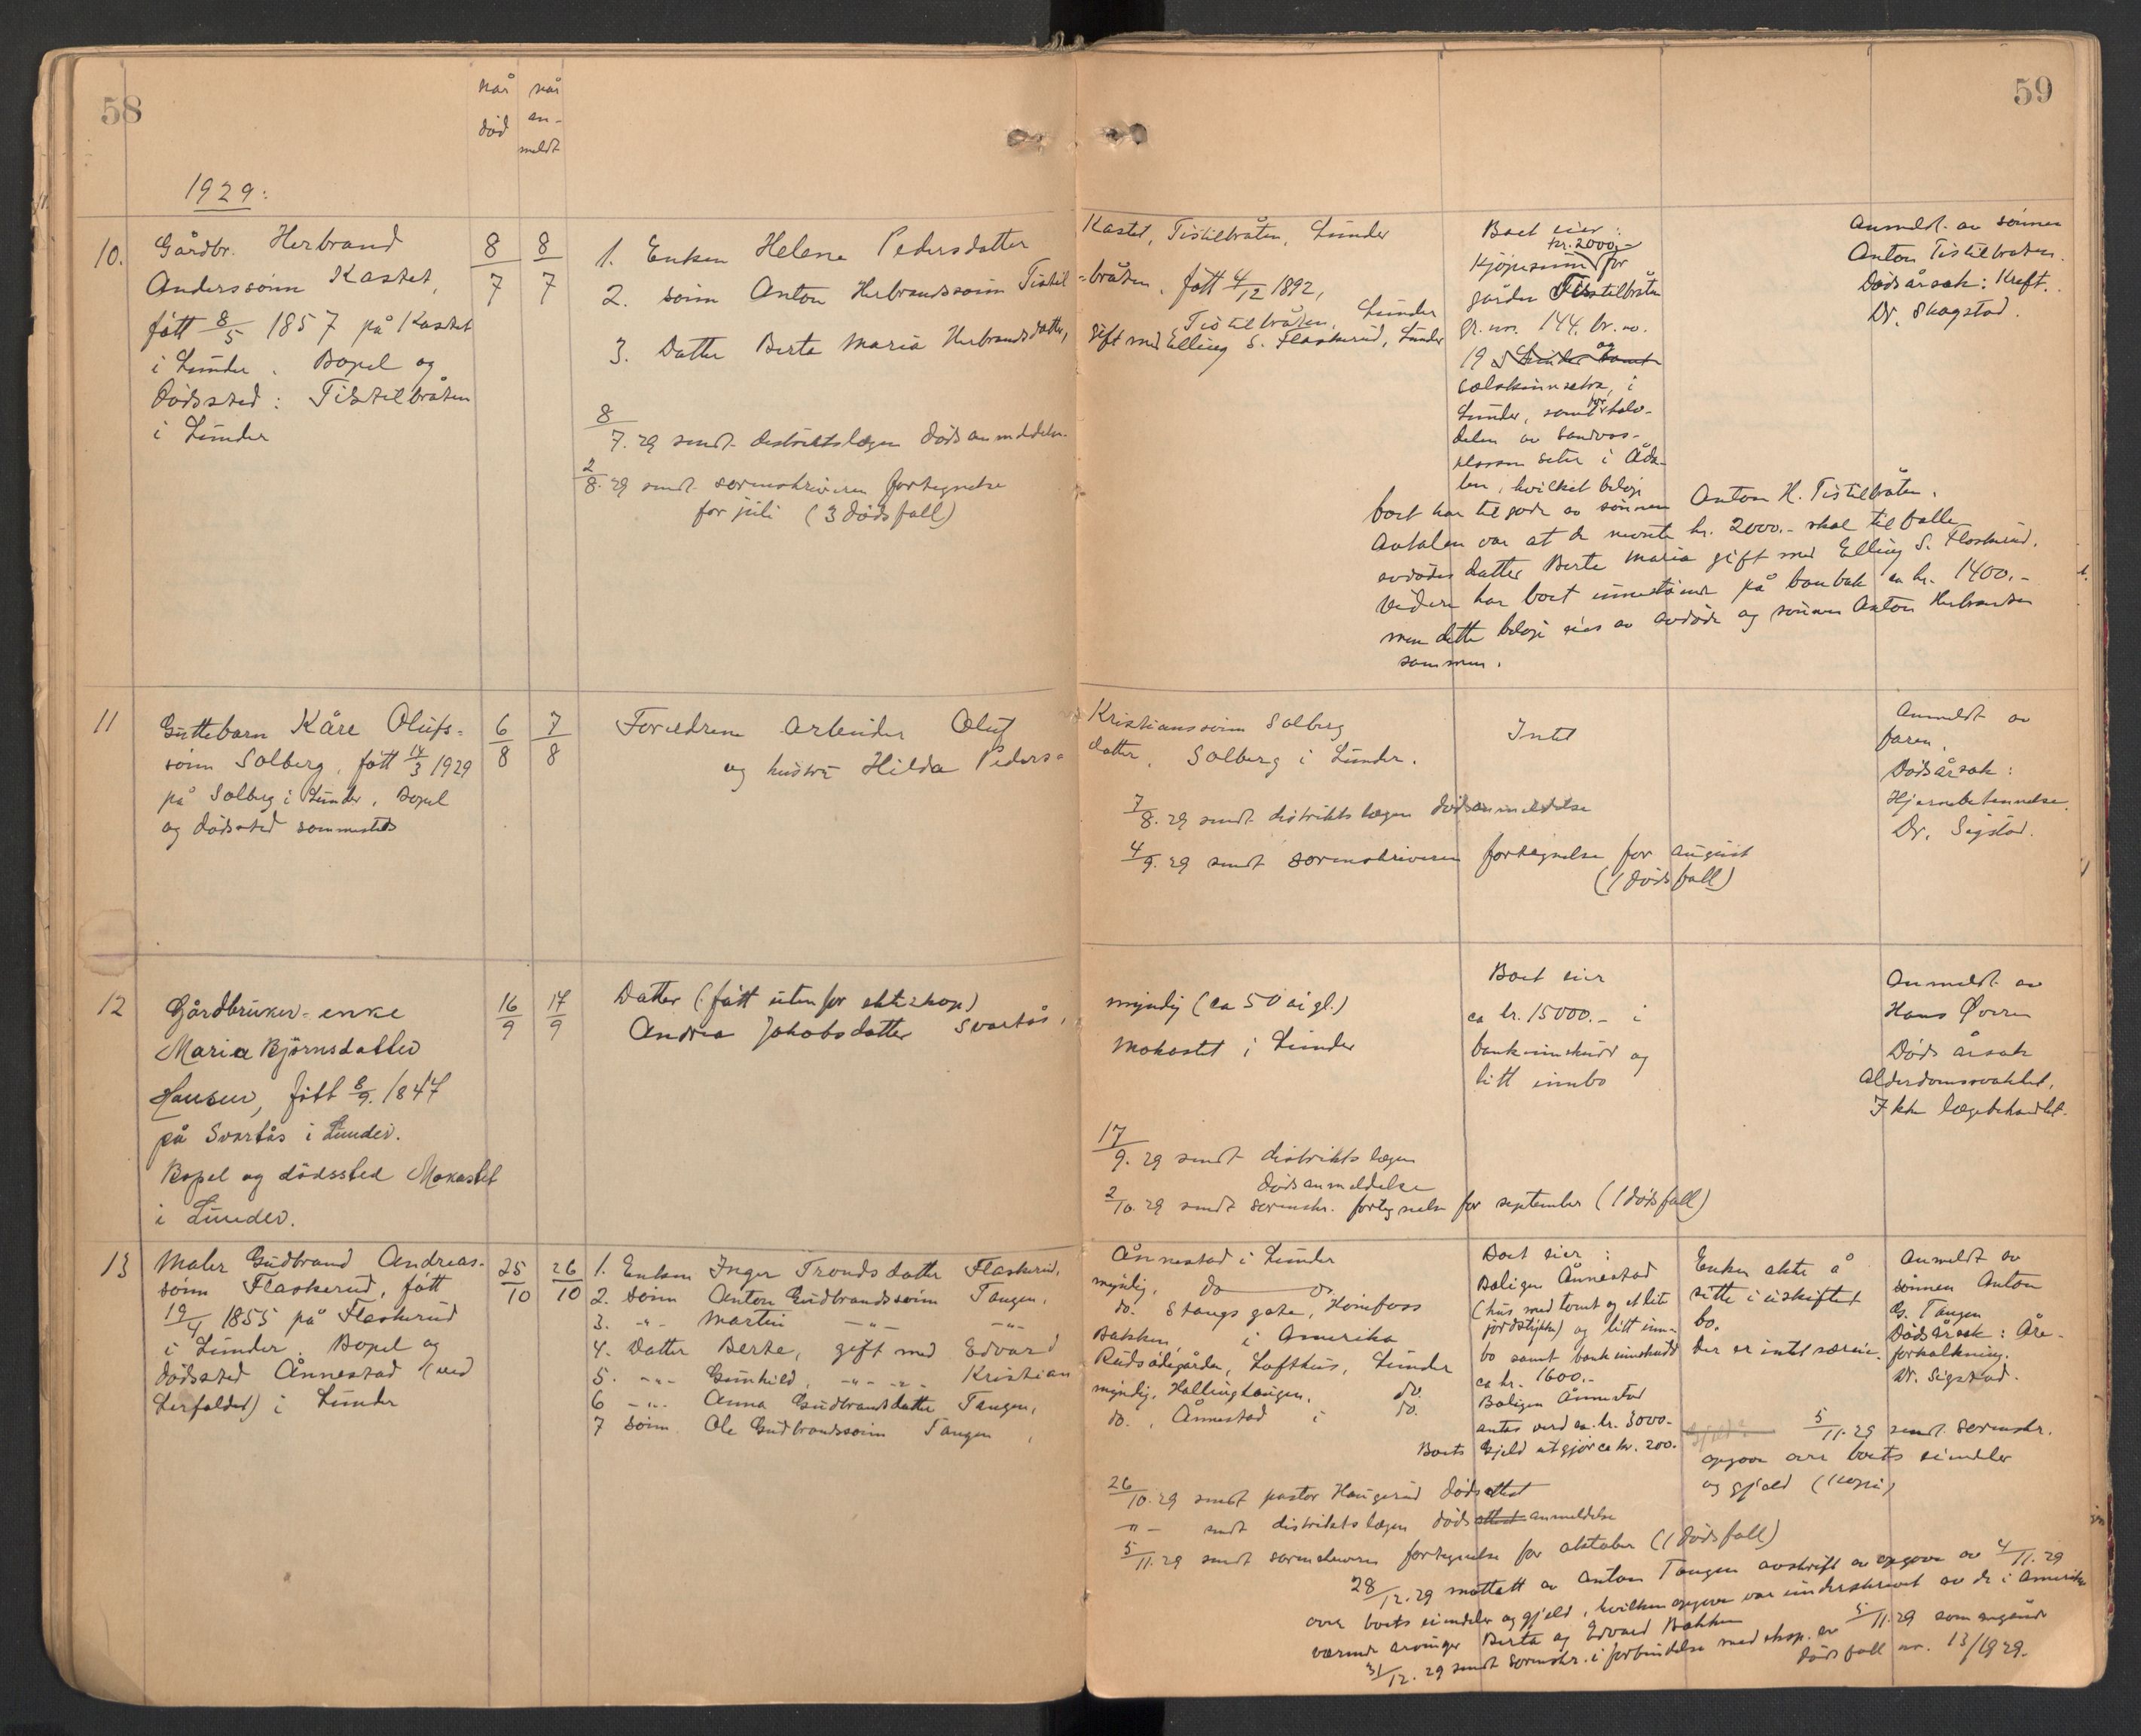 58
når død
når an- meldt
59
1929:
10.
Gårdbr. Herbrand
Anderssönn Kastet,
fått 8/5 1857 på Kastet
i Lunder. Bopel og
Dödssted: Tistilbråten
i Lunder
8/7
8/7
1. Enken Helene Pedersdatter Kastet, Tistilbråten, Lunder
2. sönn Anton Herbrandssönn Tistil=bråten, fått 4/12 1892,
Tistilbråten, Lunder
3. Datter Berta Maria Herbrandsdatter, gift med Elling S. Flaskerud, Lunder
8/7. 29 sendt distriktslægen dödsanmeldelse.
2/8. 29 sendt sorenskriveren fortegnelse
for juli (3 dödsfall)
Boet eier:
kr. 2000,-
Kjöpesum for
gården Tistilbråten
gr. nr. 144. br. no.
19 og
i
Lunder, samt for halv-
delen av
seter i Åda-
len, hvilket belöp
boet har tilgode av sönnen Anton H. Tistilbråten.
Avtalen var at de nevnte kr. 2000.- skal tilfalle
avdödes datter Berta Maria gift med Elling S. Flaskerud.
Videre har boet innestående på bankbok ca kr. 1400.-
men dette belöp eies av avdöde og sönnen Anton Herbrandsen
sammen.
Anmeldt av sönnen
Anton Tistilbråten.
Dödsårsak: Kreft.
Dr. Skagstad.
11
Guttebarn Kåre Olufs-
sönn Solberg, fått 14/3 1929
på Solberg i Lunder, Bopel
og dödssted sammesteds
6/8
7/8
Foreldrene Arbeider Oluf Kristianssönn Solberg
og hustru Hilda Peders=datter, Solberg i Lunder.
7/8. 29 sendt distriktslægen dödsanmeldelse
4/9. 29 sendt sorenskriveren fortegnelse for august
(1 dödsfall)
Intet
Anmeldt av
faren.
Dödsårsak:
Hjernebetennelse.
Dr. Sigstad.
12
Gårdbruker-enke
Maria Björnsdatter
Hansen, fått 8/9. 1847
på Svartås i Lunder.
Bopel og dödssted Mokastet
i Lunder.
16/9
17/9
Datter (fått utenfor ekteskap) myndig (ca 50 år gl.)
Andrea Jakobsdatter Svartås, Mokastet i Lunder
17/9. 29 sendt distriktslægen
dödsanmeldelse
2/10. 29 sendt sorenskr. fortegnelse for september (1 dödsfall)
Boet eier
ca kr. 15000.- i
bankinnskudd og
litt innbo
Anmeldt av
Hans Øvren
Döds årsak
Alderdomssvakhet.
Ikke lægebehandlet.
13
Maler Gudbrand Andreas-
sönn Flaskerud, fått
19/4 1855 på Flaskerud
i Lunder. Bopel og
dödssted Ånnestad (ved
Lerfaldet) i Lunder
25/10
26/10
1. Enken Inger Trondsdatter Flaskerud, Ånnestad i Lunder
2. sönn Anton Gudbrandssönn Tangen, myndig, do do.
3. -"- Martin -"- -"- do. Stangs gate, Hönefoss
4. Datter Berte, gift med Edvard Bakken, i Amerika
5. -"- Gunhild, -"- -"- Kristian Rudsödegården, Lofthus, Lunder
6 -"- Anna Gudbrandsdatter Tangen, myndig, Hallinghaugen, do.
7 sönn Ole Gudbrandssönn Tangen, do., Ånnestad i do.
Boet eier:
Boligen Ånnestad
(hus med tomt og et lite
jordstykke) og litt inn-
bo samt bankinnskudd
ca kr. 1600.-
Boligen Ånnestad
antas verd ca. kr. 3000.-
Boets Gjeld utgjör ca kr. 200.-
Enken akter å
sitte i uskiftet
bo.
Der er intet særeie.
Anmeldt av
sönnen Anton
G. Tangen
Dödsårsak: Åre-
forkalkning.
Dr. Sigstad.
5/11. 29 sendt sorenskr.
opgave over boets eiendeler
og gjeld (kopi)
26/10. 29 sendt pastor Haugerud dödsattest
-"- sendt distriktslægen döds attest anmeldelse
5/11. 29 sendt sorenskriveren fortegnelse for oktober (1 dödsfall)
28/12. 29 mottatt av Anton Tangen avskrift av opgave av 4/11. 29
over boets eiendeler og gjeld, hvilken opgave var underskrevet av de i Amerika
værende arvinger Berta og Edvard Bakken
31/12. 29 sendt sorenskr. i forbindelse med eksp. av 5/11. 29 som angående
dödsfall nr. 13/1929.